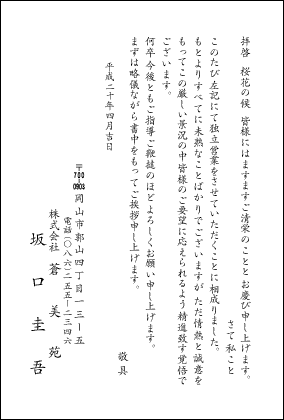 拝啓　桜花の候　皆様にはますますご清栄のこととお慶び申し上げます。
さて私こと
このたび左記にて独立営業をさせていただくことに相成りました。
もとよりすべてに未熟なことばかりでございますが、ただ情熱と誠意を
もってこの厳しい景況の中皆様のご要望に応えられるよう精進致す覚悟で
ございます。
何卒今後ともご指導ご鞭撻のほどよろしくお願い申し上げます。
まずは略儀ながら書中をもってご挨拶申し上げます。
敬具
平成二十年四月吉日
〒700-0903　岡山市郭山四丁目一三−五
電話(〇八六)二五五−二三四六
株式会社　蒼美苑
坂口圭吾